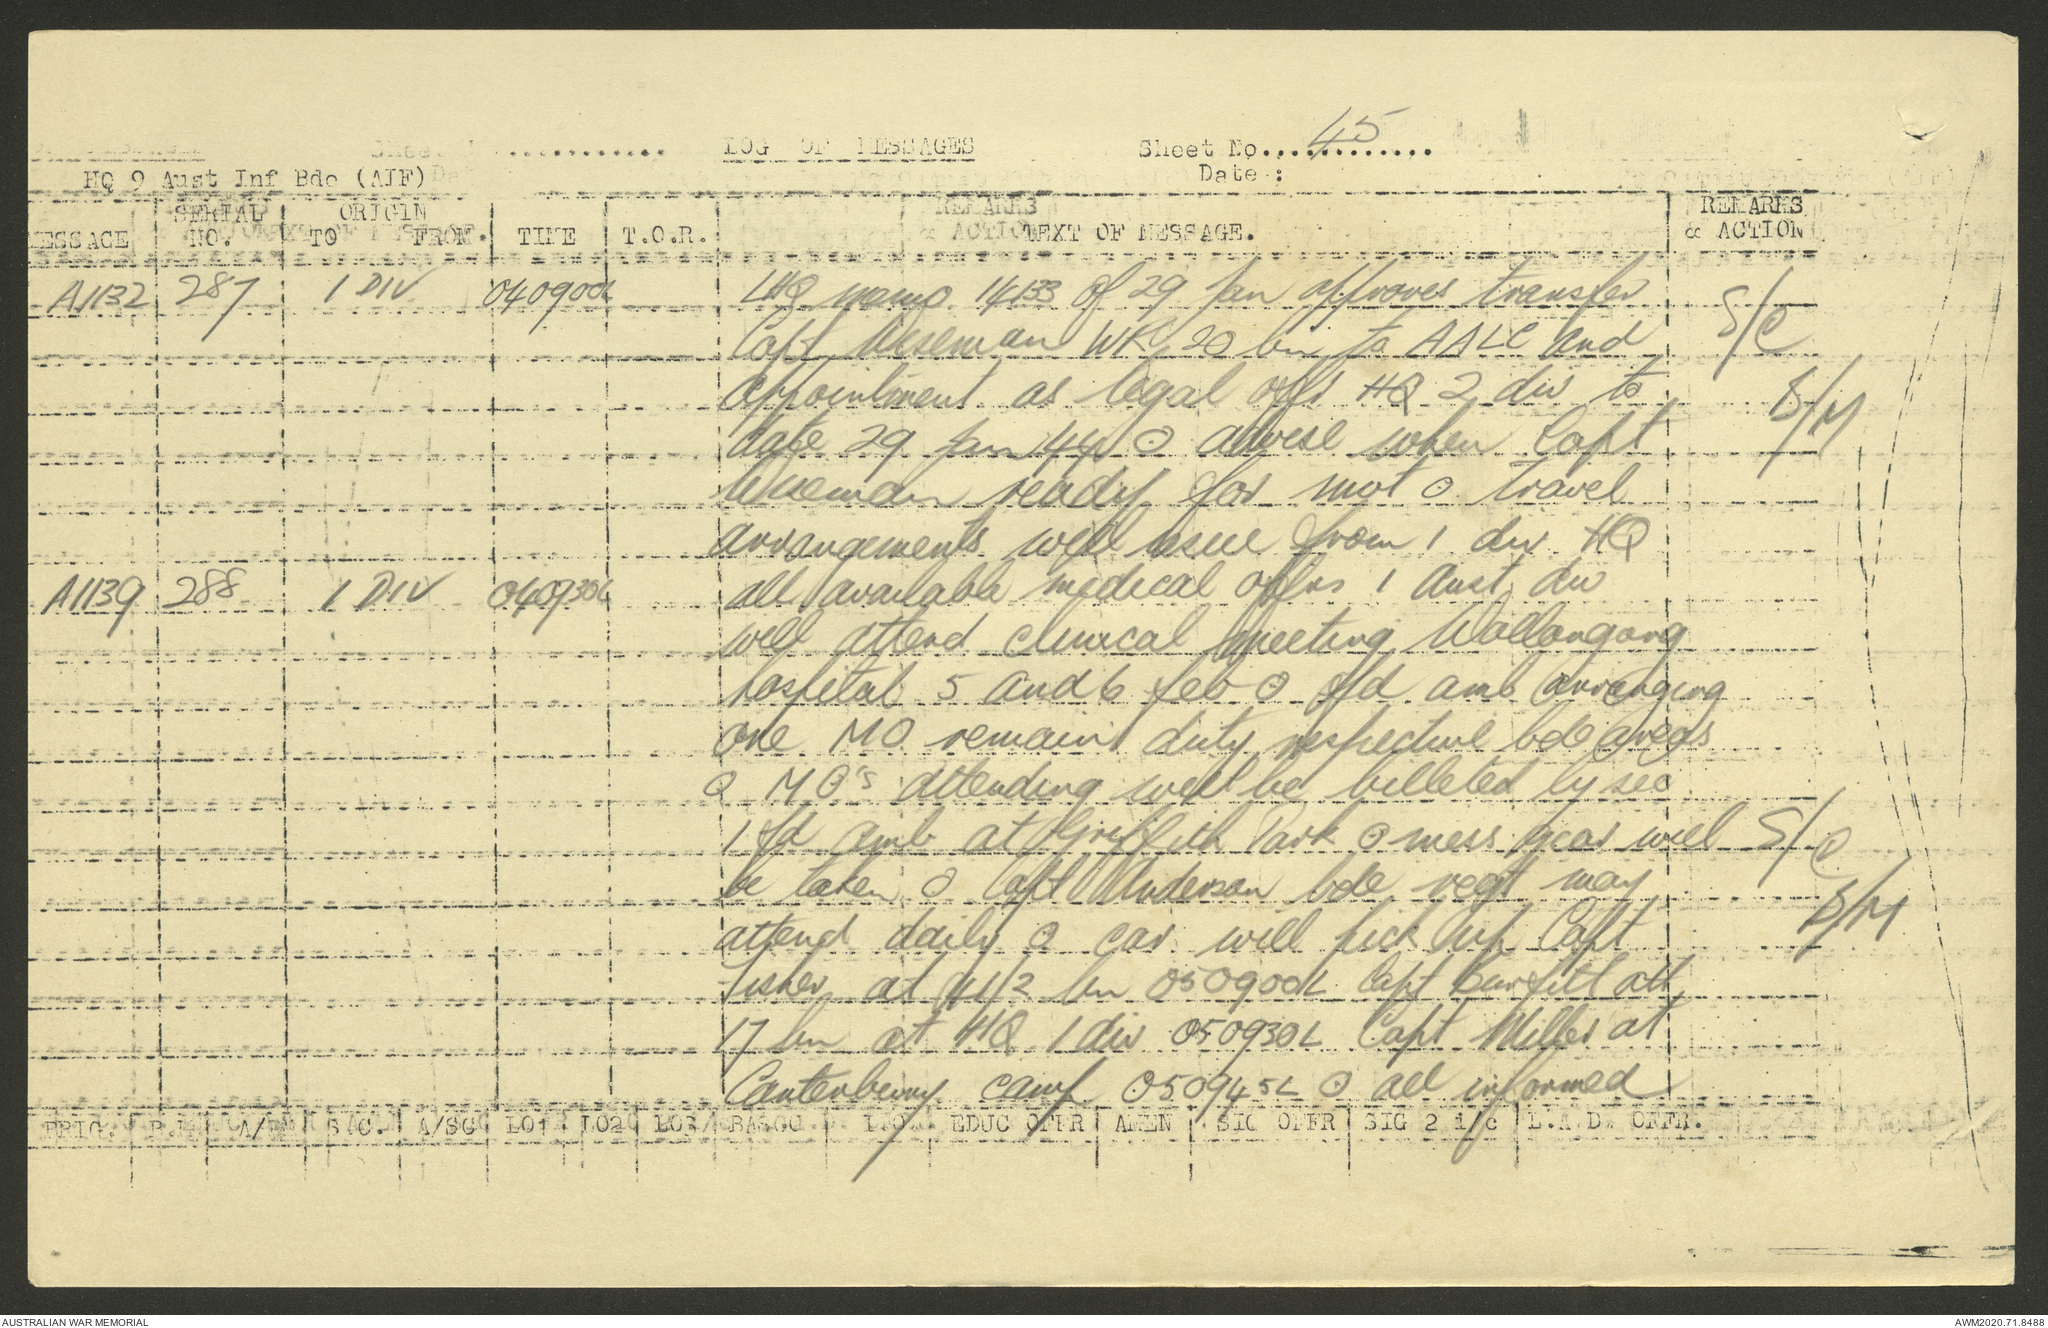 LOG OF MESSAGES
Sheet No. 45
HQ 9 Aust Inf Bde (AIF)
Date :
MESSAGE SERIAL NO. ORIGIN TO FROM. TIME T.O.R. TEXT OF MESSAGE. REMARKS & ACTION
A1132 287 1 DIV 040900L LHQ memo 14133 of 29 Jan approves transfer
Capt Wiseman WK 20 bn to AALC and S/C
appointment as legal offr HQ 2 div to B/M
date 29 Jan 44 ⊙ advise when Capt
Wiseman ready for mot ⊙ travel
arrangements will issue from 1 div HQ
A1139 288 1 DIV 040930L all available medical offrs 1 Aust div
will attend clinical meeting Wollongong
hospital 5 and 6 feb ⊙ fd amb arranging
one MO remain duty respective bde areas
⊙ MO's attending will be billeted by sec
1 fd amb at Griffith Park ⊙ mess gear will S/C
be taken ⊙ Capt Anderson bde regt may B/M
attend daily ⊙ car will pick up Capt
Fisher at 41/2 bn 050900L Capt att
17 bn at HQ 1 div 050930L Capt Miller at
Canterbury camp 050945L ⊙ all informed
BRIG. B.M A/B S/C. A/SC LO1 LO2 LO3 BASCO I.O. EDUC OFFR AMEN SIG OFFR SIG 2 i/c L.A.D. OFFR.
AUSTRALIAN WAR MEMORIAL
AWM2020.71.8488